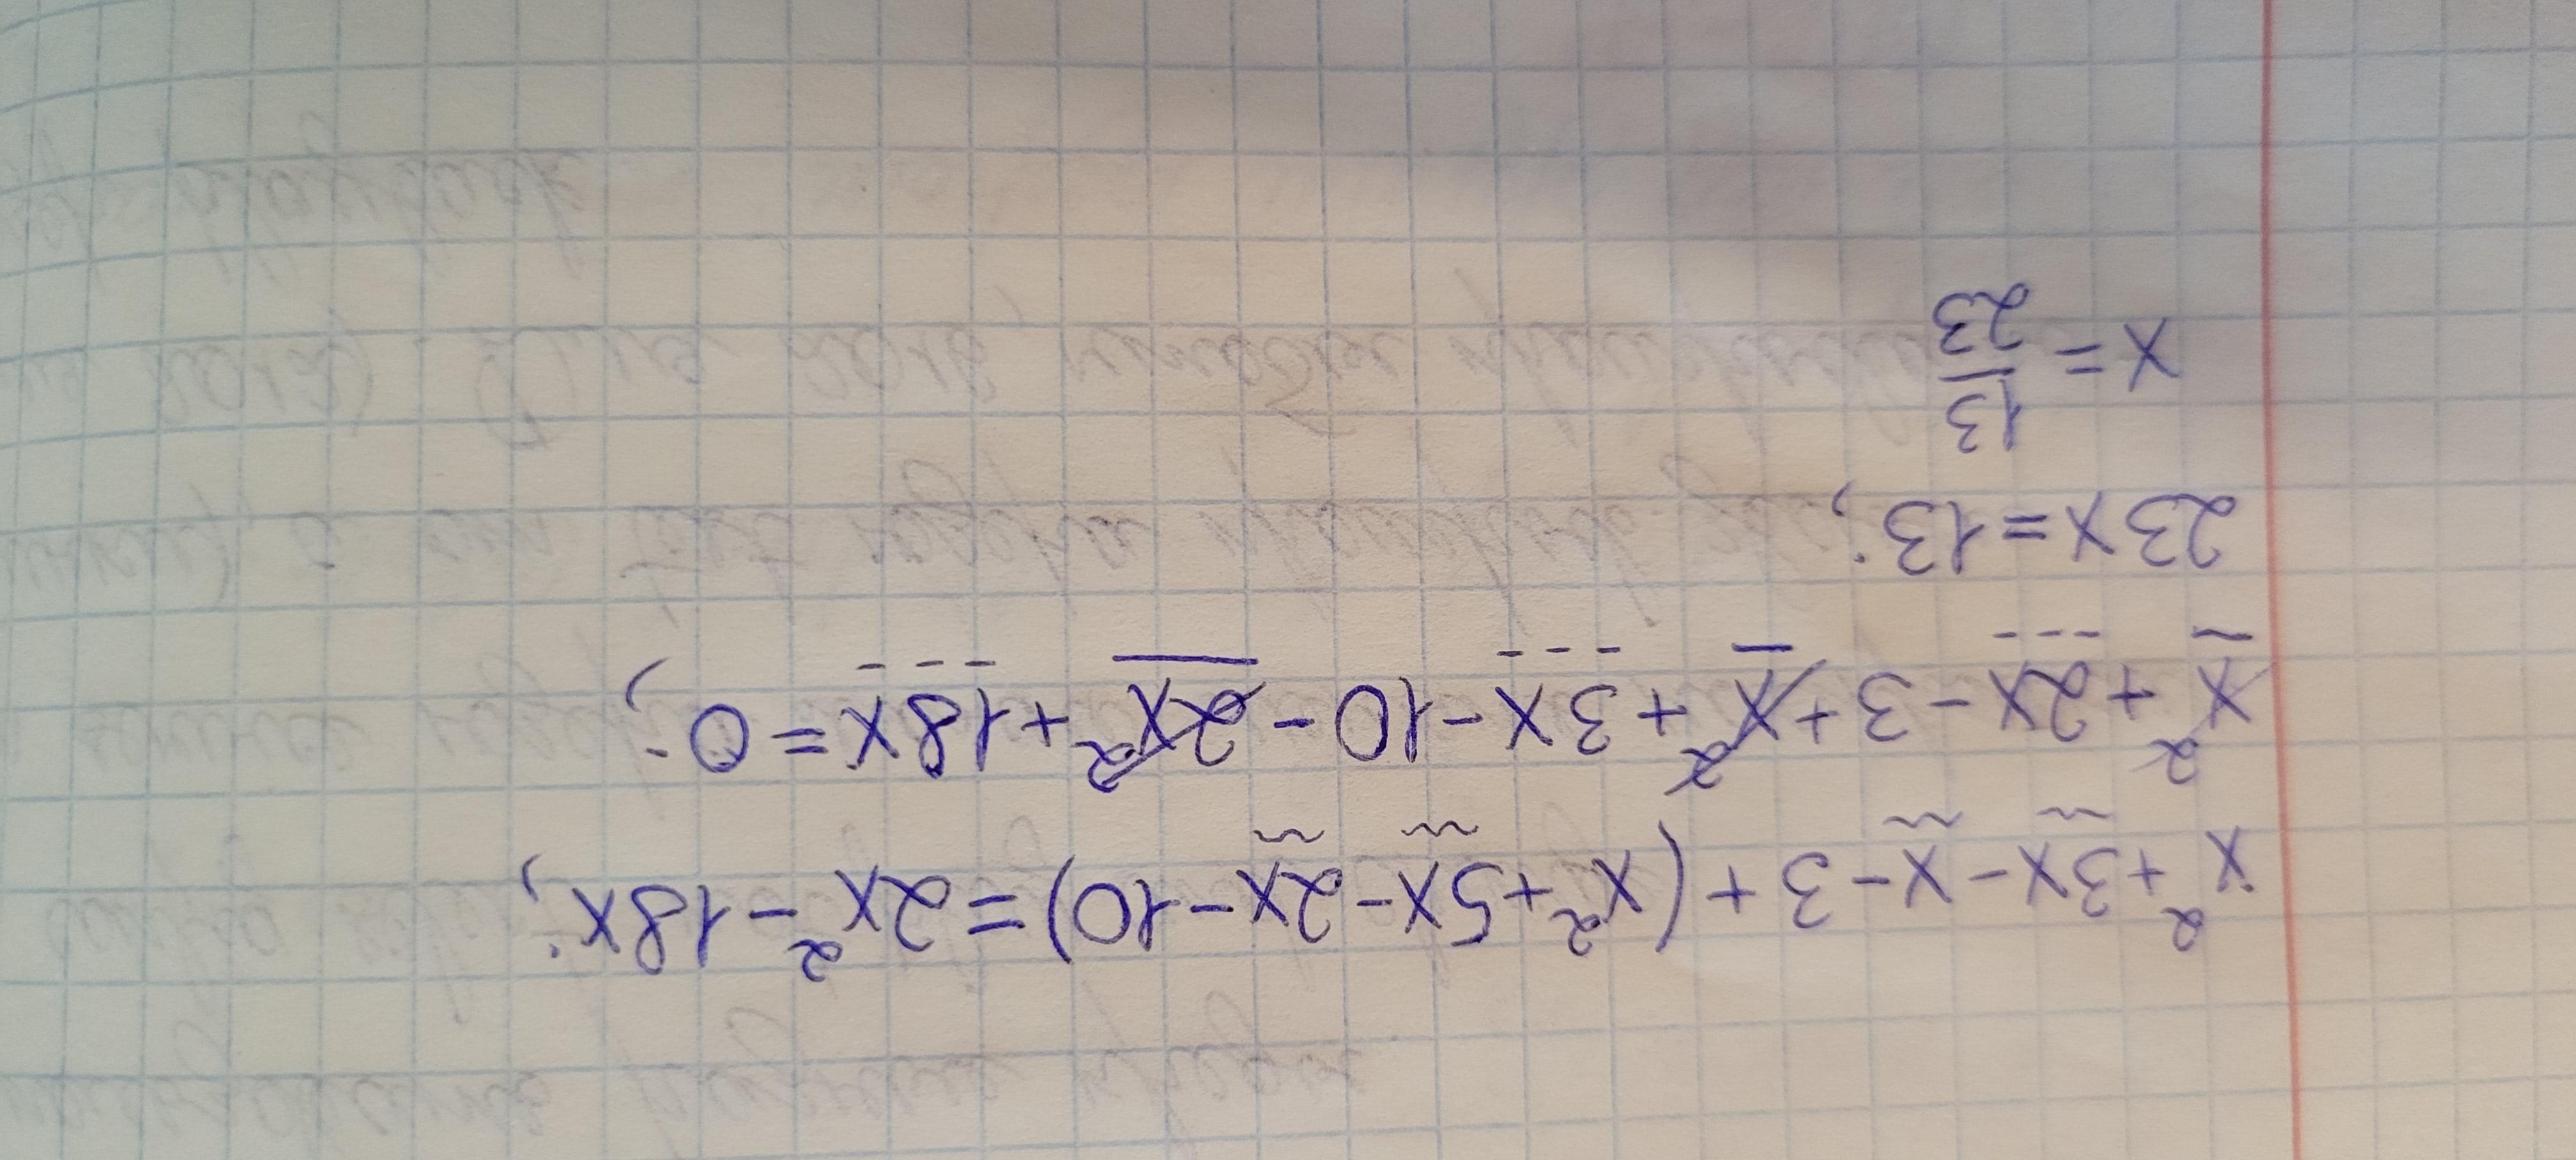 x²+3x-x-3+(x²+5x-2x-10)=2x²-18x;
x²+2x-3+x²+3x-10-2x²+18x=0;
23x=13;
x=13/23